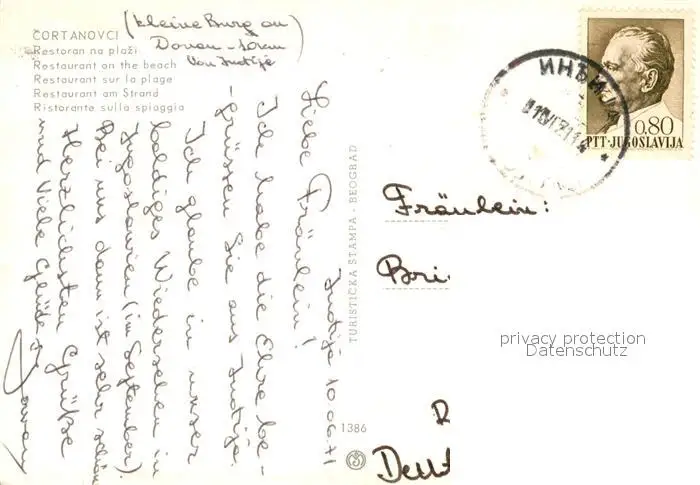 ČORTANOVCI
Restoran na plaži
Restaurant on the beach
Restaurant sur la plage
Restaurant am Strand
Ristorante sulla spiaggia
(kleine Burg an
Donau - 10km
von Inđija)
Inđija 10.06.71
Liebe Fräulein!
Ich habe die Ehre be-
grüssen Sie aus Inđija.
Ich glaube in unser
baldiges Wiedersehen in
Jugoslawien (im September).
Bei uns dann ist sehr schön
Herzlichsten Grüße
und viele Grüße
TURISTIČKA ŠTAMPA - BEOGRAD
1386
ИНЂИЈА
0,80
PTT-JUGOSLAVIJA
Fräulein:
Bri
privacy protection
Datenschutz
R
Deut